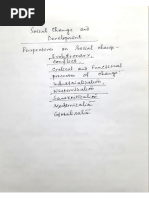 Social Change and
Development
Perspectives on Social change -
Evolutionary
Conflict
Critical and Functional
processes of Change
Industrialisation
Westernisation
Sanskritisation
Modernisation
Globalisation